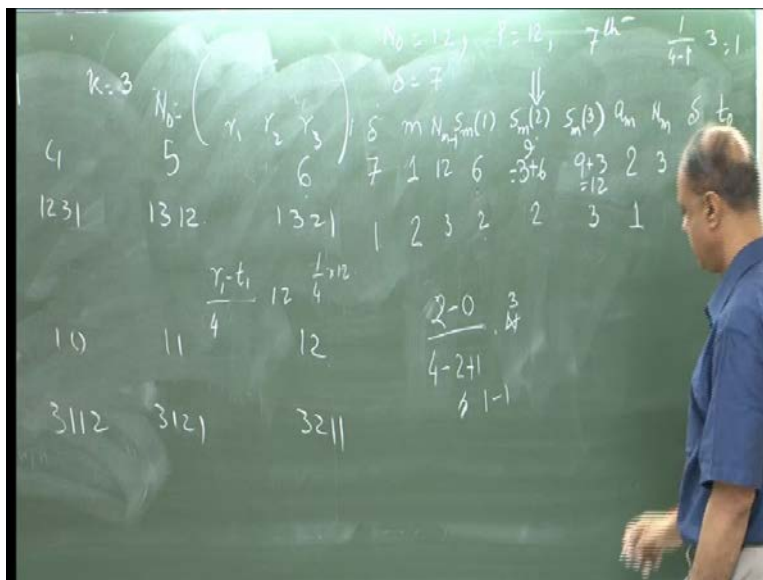 N0 = 12, P = 12, 7th 1/(4-1) 3 = 1
K = 3 δ = 7
N0 = ( r1 r2 r3 ) ; δ m Nm-1 Sm(1) Sm(2) Sm(3) am Nm δ
4 5 6 7 1 12 6 9 = 3+6 9+3 = 12 2 3
1231 1312 1321 1 2 3 2 2 3 1
(r1 - t1)/4 12 1/4 × 12
(2-0)/(4-2+1) · 3
10 11 12 1-1
3112 3121 3211